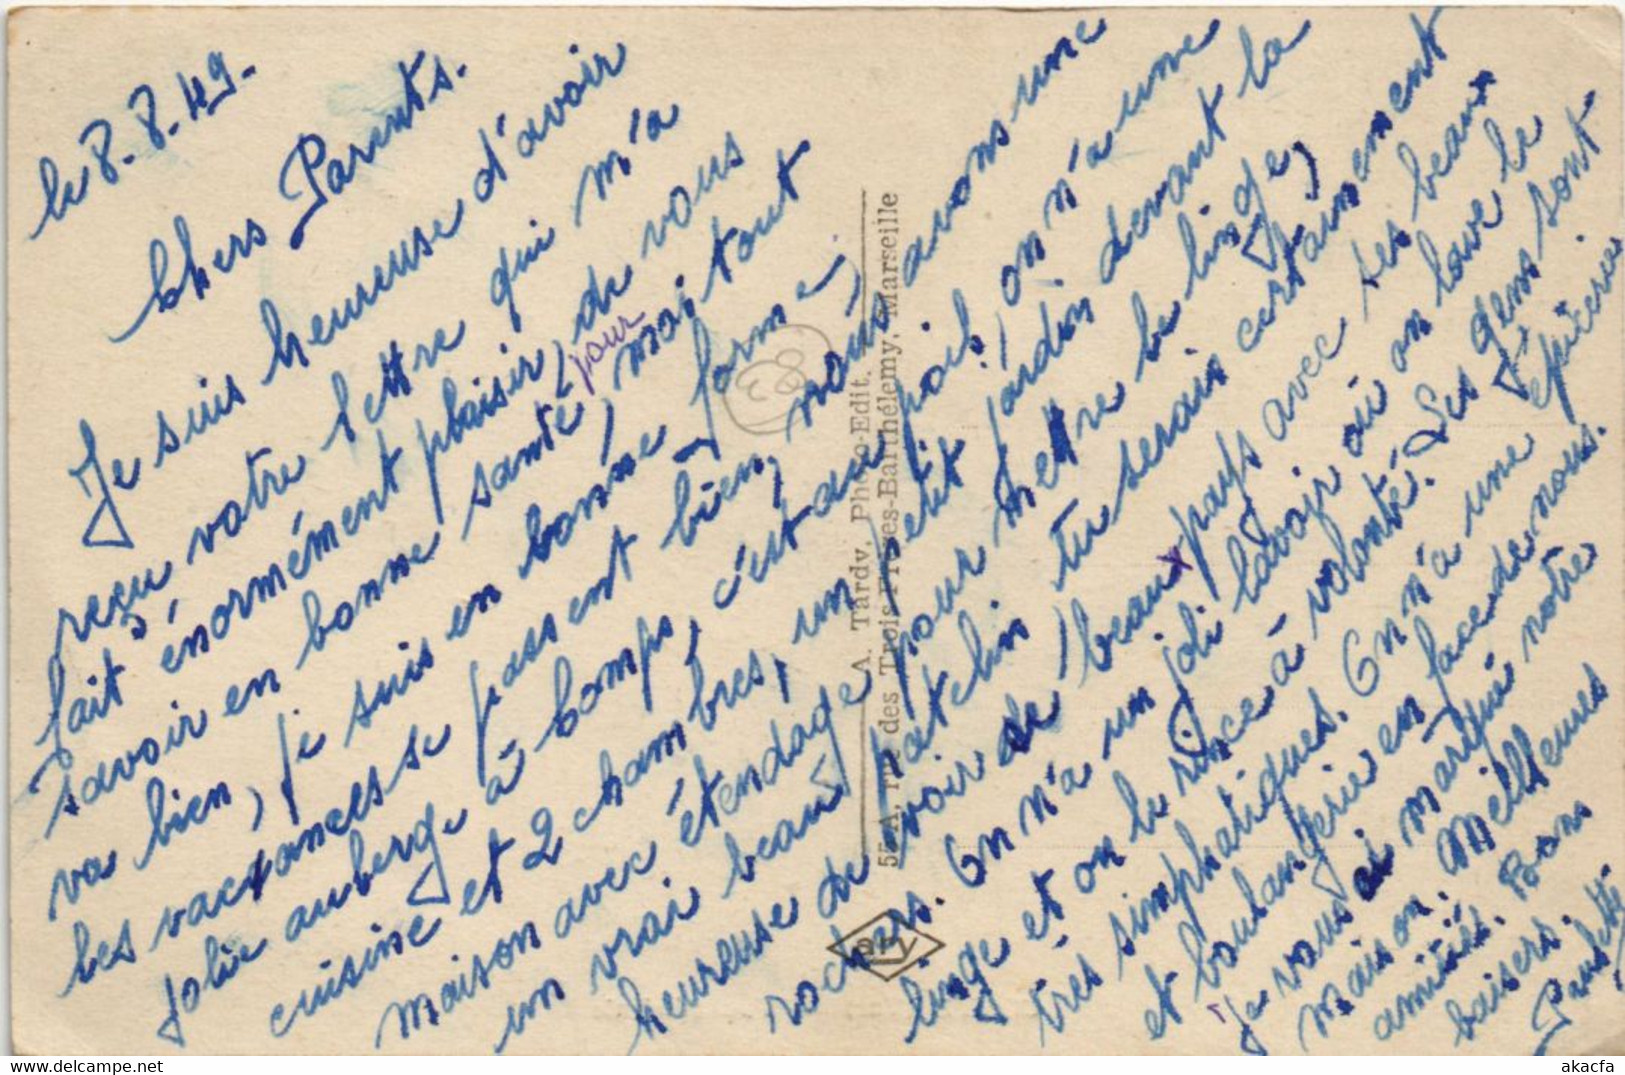 le 8.8.49.
Chers Parents.
Je suis heureuse d'avoir
reçu votre lettre qui m'a
fait énormément plaisir, de vous
savoir en bonne santé, pour moi tout
va bien, je suis en bonne forme,
les vacances se passent bien, nous avons une
jolie auberge à bomps, c'est au poil, on n'a une
cuisine et 2 chambres, un petit jardin devant la
maison avec étendage pour mettre le linge,
un vrai beau patelin, tu serais certainement
heureuse de voir de beaux pays avec ses beaux
rochers. On n'a un joli lavoir où on lave le
linge et on le rince à volonté. Les gens sont
très simphatiques. On n'a une épicerie
et boulangerie en face de nous.
Je vous ai marqué notre
maison. Meilleures
amitiés. Bons
baisers.
Paulette
A. Tardy, Photo-Edit.
55-A, rue des Trois-Frères-Barthélemy, Marseille
38
akacfa